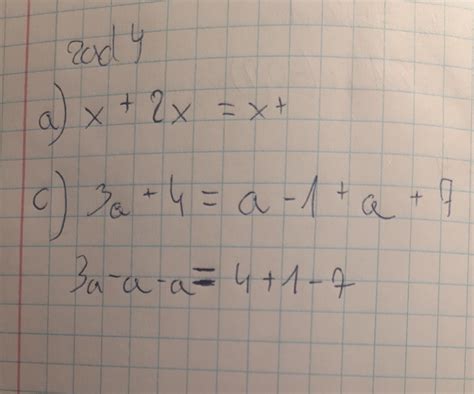 zad 4
a) x + 2x = x +
c) 3a + 4 = a - 1 + a + 7
3a - a - a = 4 + 1 - 7